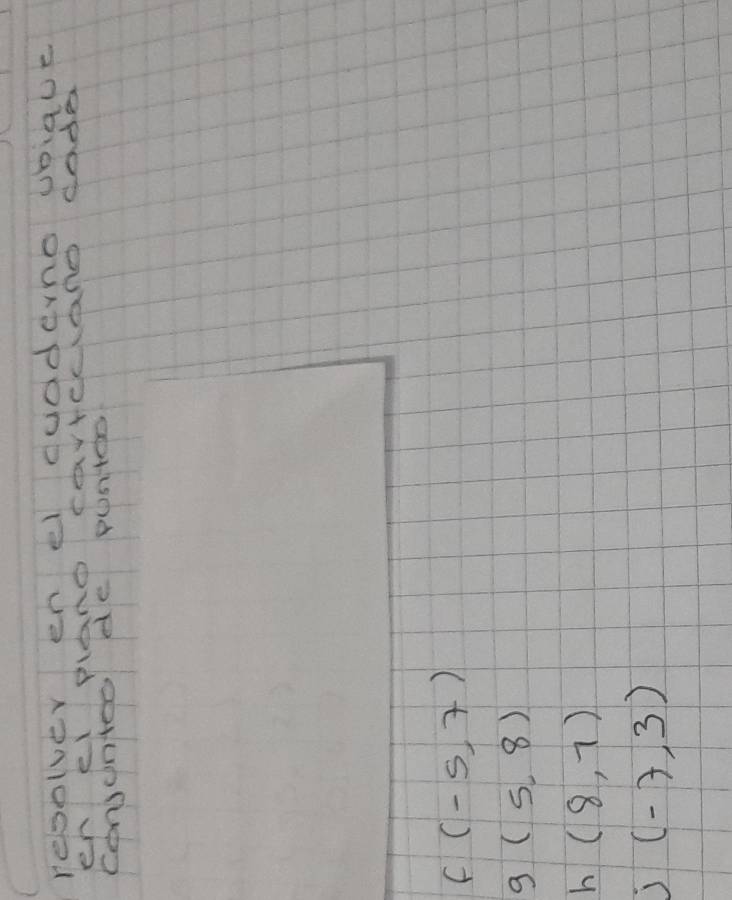 resolver en el cuaderno ubique
en el plano carteciano cada
conjuntos de puntos
f (-5, 7)
g (5, 8)
h (8, 1)
j (-7, 3)